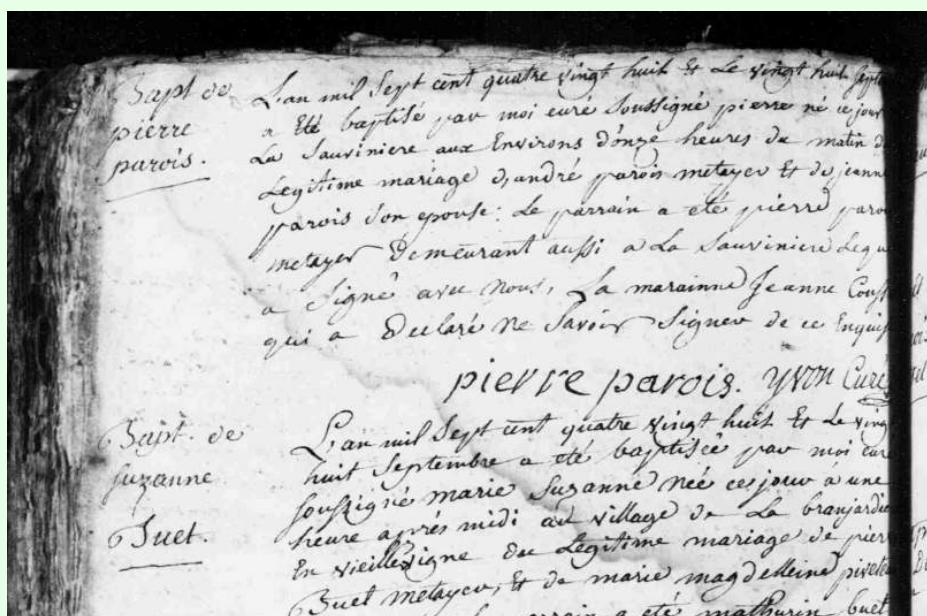 Bapt de
pierre
parois.
L'an mil Sept cent quatre vingt huit Et Le vingt huit Septe
a Eté baptisé par moi curé Soussigné pierre né ce jour
La Sauviniere aux Environs d'onze heures du matin d
Legitime mariage d'andré parois metayer Et de jeanne
parois Son epouse: Le parrain a eté pierre paroi
metayer Demeurant aussi a La Sauviniere Leque
a Signé avec Nous, La marainne Jeanne Couss
qui a Declaré Ne Savoir Signer de ce Enquis
pierre parois. yvon Curé
Bapt. de
Suzanne
Buet.
L'an mil Sept cent quatre vingt huit Et Le ving
huit Septembre a eté baptisée par moi curé
Soussigné marie Suzanne Née ce jour à une
heure après midi au village de La branjardie
En vieillevigne du Legitime mariage de pierr
Buet metayer, Et de marie magdelleine pivetea
parrain a eté mathurin buet